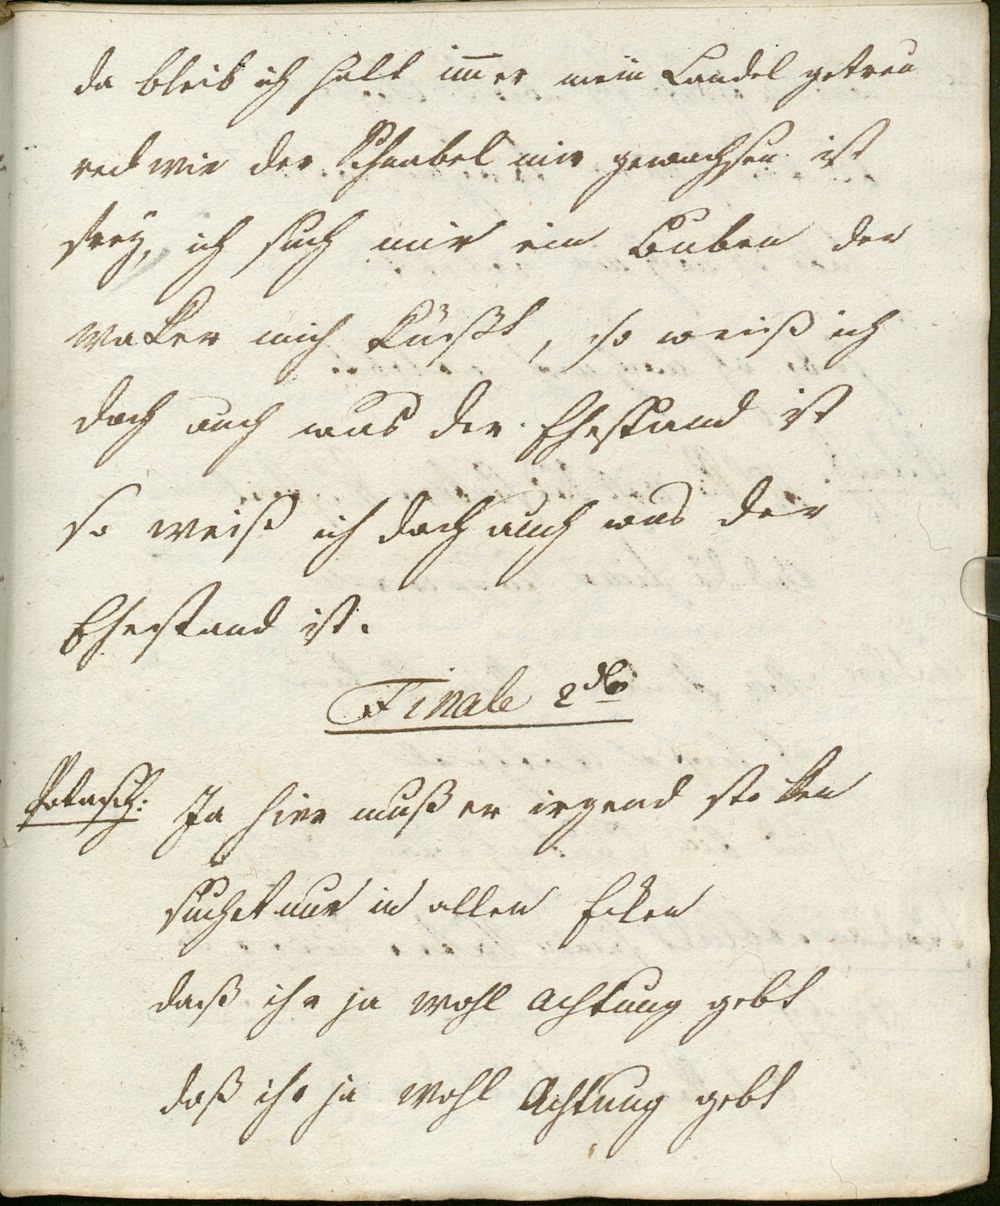 da bleib ich halt immer mein Landel getreu
red wie der Schnabel mir gewachsen ist
frey, ich such mir ein Buben der
waker mich küeßt, so weiß ich
doch auch was der Ehestand ist
so weiß ich doch auch was der
Ehestand ist.
Finale 2do
Potasch: Ja hier muß er irgend steken
suchet nur in allen Eken
daß ihr ja wohl Achtung gebt
daß ihr ja wohl Achtung gebt